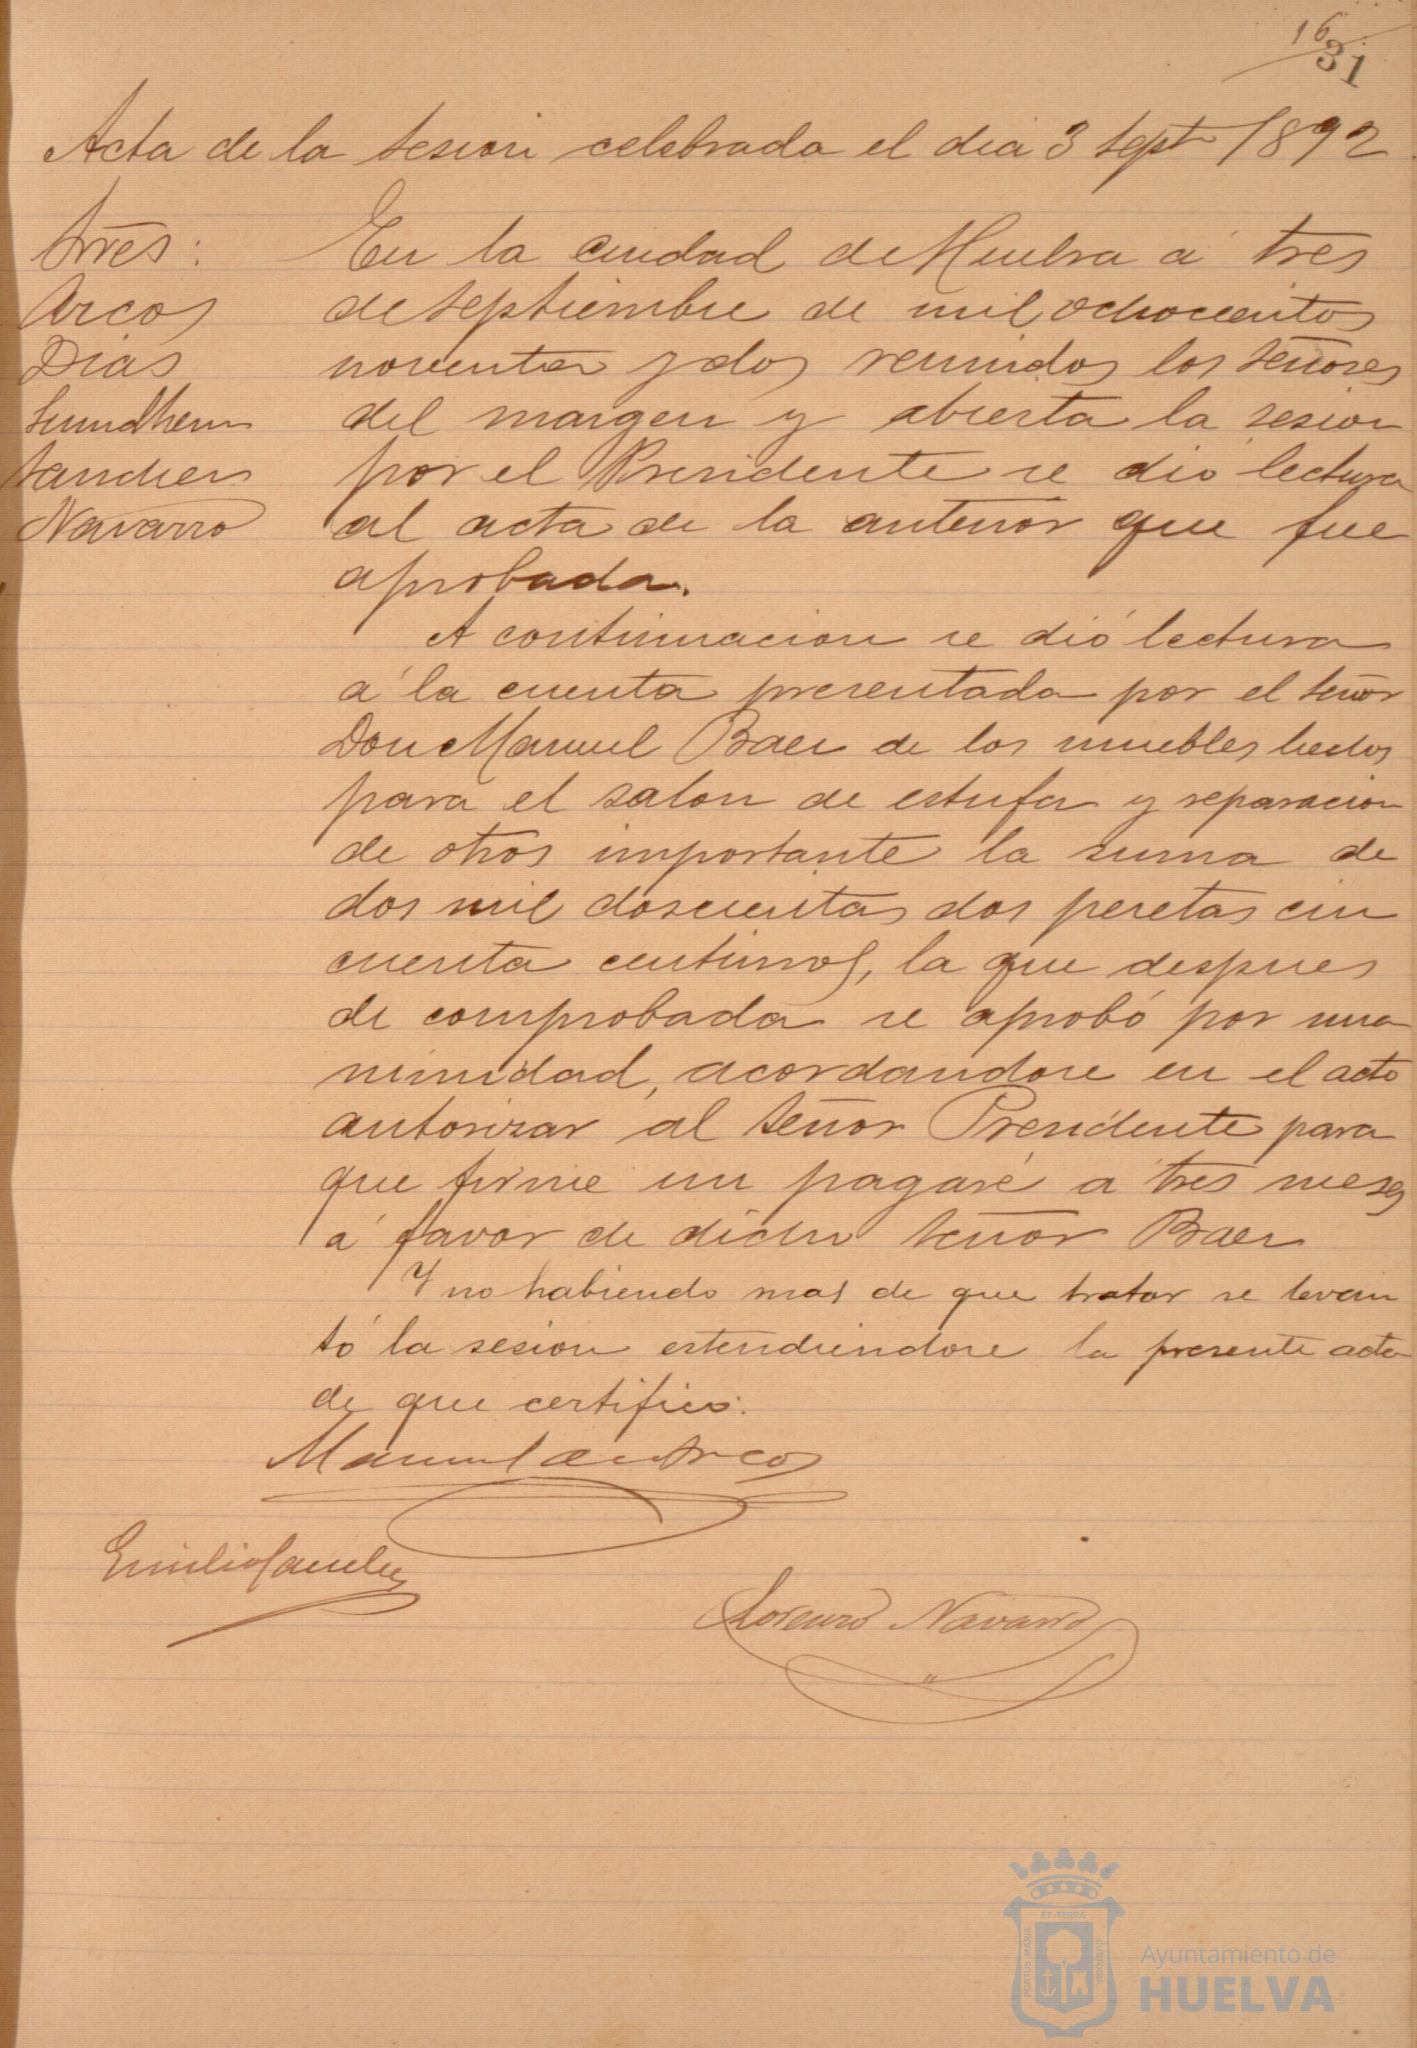 16
31
Acta de la sesion celebrada el dia 3 Septe 1892
Srres:
Arcos
Dias
Sundhem
Sanches
Navarro
En la ciudad de Huelva á tres
de septiembre de mil ochocientos
noventa y dos reunidos los señores
del margen y abierta la sesion
por el Presidente se dio lectura
al acta de la anterior que fue
aprobada.
A continuacion se dió lectura
á la cuenta presentada por el señor
Don Manuel Baer de los muebles hechos
para el salon de estufa y reparacion
de otros importante la suma de
dos mil doscientas dos pesetas cin
cuenta centimos, la que despues
de comprobada se aprobó por una
nimidad, acordandose en el acto
autorizar al señor Presidente para
que firme un pagaré á tres meses
á favor de dicho señor Baer
Y no habiendo mas de que tratar se levan
tó la sesion estendiendose la presente acta
de que certifico:
Manuel de Arcos
Emilio Sanchez
Lorenzo Navarro
PORTUS MARIS ET TERRÆ CUSTODIA
Ayuntamiento de
HUELVA